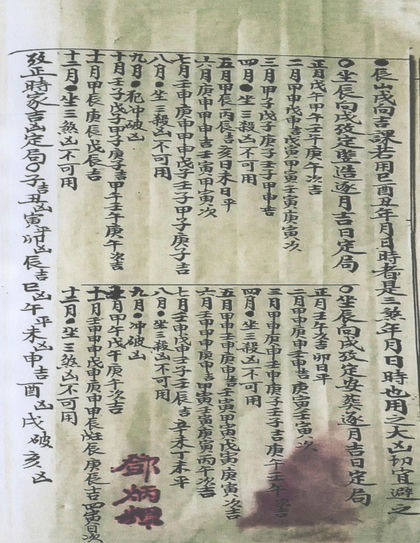 ●辰山戌向吉課若用巳酉丑年月日時者是三煞年月日時也用之大凶切宜避之
○坐辰向戌攷定豎造逐月吉日定局
正月戊午甲午壬午庚午次吉
二月甲申戊申吉戊寅甲寅壬寅庚寅次
三月甲子戊子庚子壬子甲申吉
四月●坐三殺凶不可用
五月甲辰丙辰吉亥日未日平
六月庚申甲申吉壬寅甲寅次
七月壬申庚申戊子壬子甲子庚子吉
八月●坐三殺凶不可用
九月●犯冲破凶
十月壬子戊子甲子庚子吉甲午壬午庚午次吉
十一月甲辰庚辰戊辰壬辰吉
十二月●坐三煞凶不可用
○坐辰向戌攷定安葬逐月吉日定局
正月壬午次吉卯日平
二月甲申庚申壬申吉庚寅壬寅次
三月甲子壬子庚子甲申壬申吉庚午壬午
四月●坐三殺凶不可用
五月甲申庚申壬申吉甲寅戊寅庚寅次吉
六月甲申庚申吉甲寅壬寅庚寅丙午次吉
七月壬申戊申壬子壬辰吉丑未丁未平
八月●坐三殺凶不可用
九月●冲破凶
十月甲午戊午庚午次吉
十一月壬申甲申庚申甲辰壬辰庚辰吉四寅日次
十二月●坐三煞凶不可用
攷正時家吉凶定局○子吉丑凶寅平卯凶辰吉巳凶午平未凶申吉酉凶戌破亥凶
鄧炳輝